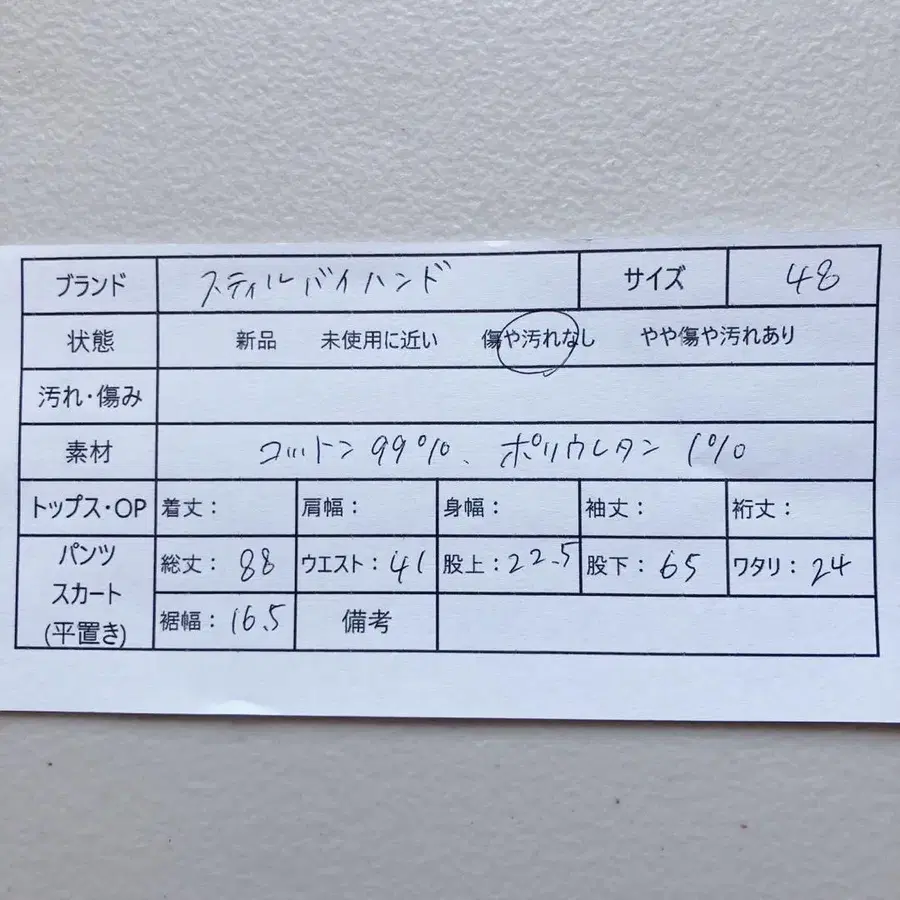 ブランド スティルバイハンド サイズ 48
状態 新品 未使用に近い 傷や汚れなし やや傷や汚れあり
汚れ・傷み
素材 コットン 99%、ポリウレタン 1%
トップス・OP 着丈： 肩幅： 身幅： 袖丈： 裄丈：
パンツ スカート (平置き) 総丈：88 ウエスト：41 股上：22.5 股下：65 ワタリ：24
裾幅：16.5 備考